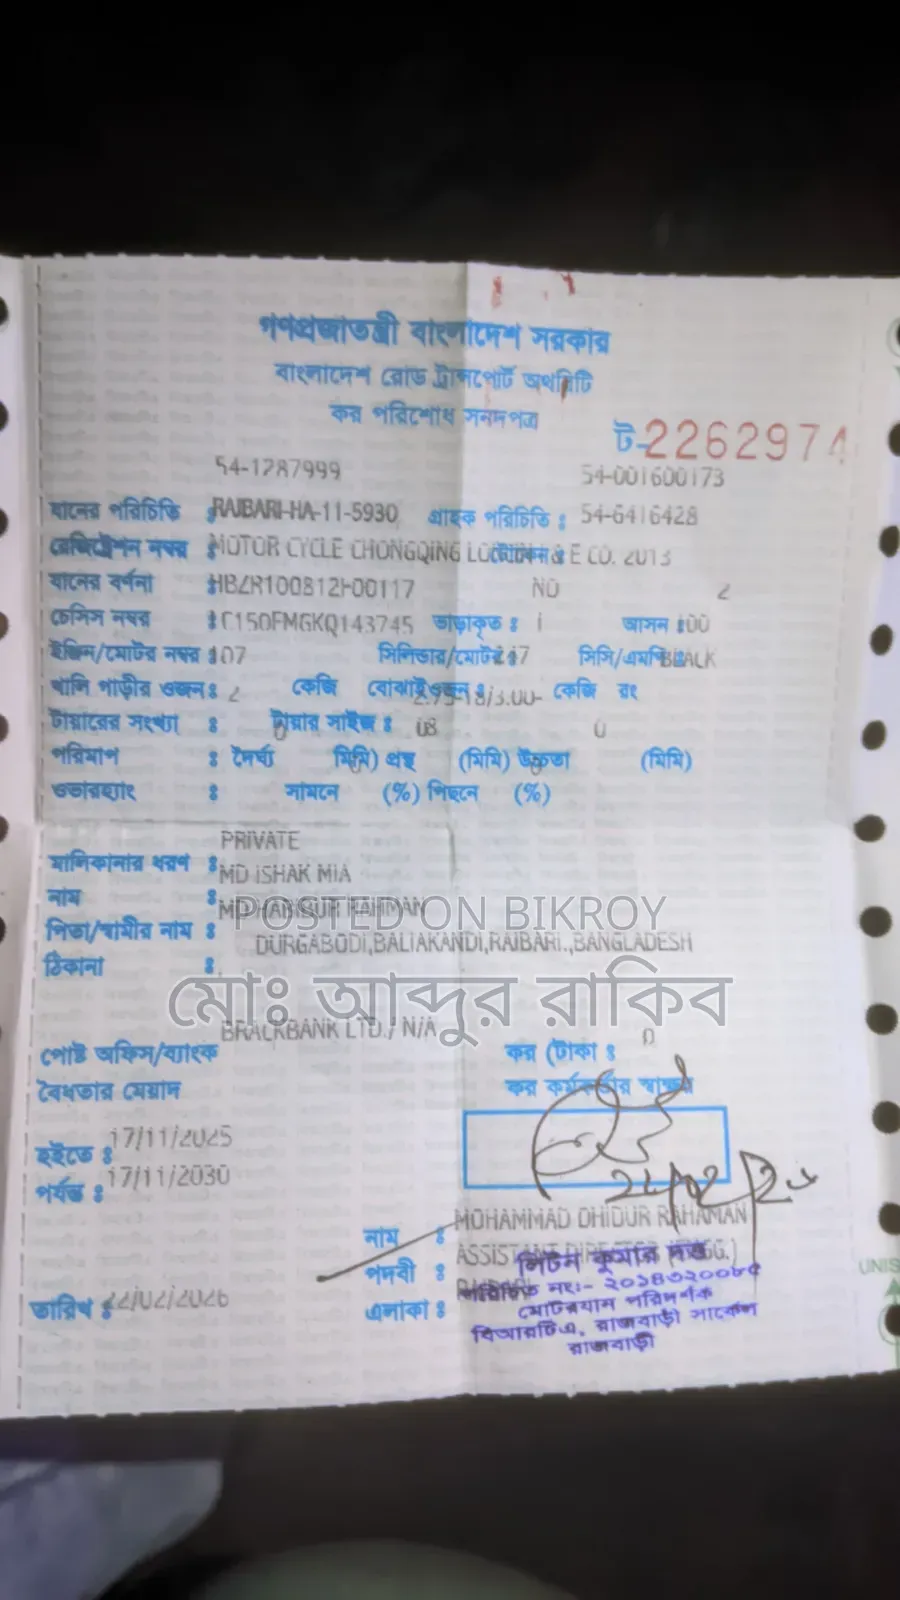 গণপ্রজাতন্ত্রী বাংলাদেশ সরকার
বাংলাদেশ রোড ট্রান্সপোর্ট অথরিটি
কর পরিশোধ সনদপত্র
ট-2262974
54-1287999 54-001600173
যানের পরিচিতি : RAJBARI-HA-11-5930 গ্রাহক পরিচিতি : 54-6416428
রেজিষ্ট্রেশন নম্বর : MOTOR CYCLE CHONGQING & E CO. 2013
যানের বর্ণনা NO 2
চেসিস নম্বর : ভাড়াকৃত : 1 আসন : 100
ইঞ্জিন/মোটর নম্বর : 107 সিলিন্ডার/মোটর সিসি/এমপি BLACK
খালি গাড়ীর ওজন : 2 কেজি বোঝাই ওজন : কেজি রং
টায়ারের সংখ্যা : টায়ার সাইজ : 08 0
পরিমাপ : দৈর্ঘ্য মিমি) প্রস্থ (মিমি) উচ্চতা (মিমি)
ওভারহ্যাং : সামনে (%) পিছনে (%)
PRIVATE
মালিকানার ধরণ : MD ISHAK MIA
নাম : MD HABIBUR RAHMAN
POSTED ON BIKROY
পিতা/স্বামীর নাম : DURGABODI,BALIAKANDI,RAJBARI.,BANGLADESH
ঠিকানা :
মোঃ আব্দুর রাকিব
BRACKBANK LTD./ N/A 0
পোষ্ট অফিস/ব্যাংক কর (টাকা :
বৈধতার মেয়াদ কর কর্মকর্তার স্বাক্ষর
হইতে : 17/11/2025
পর্যন্ত : 17/11/2030
নাম : MOHAMMAD OHIDUR RAHAMAN
পদবী : ASSISTANT DIRECTOR
লিটন কুমার দত্ত
পরিচিতি নং:-
তারিখ : 22/02/2026 এলাকা :
মোটরযান পরিদর্শক
বিআরটিএ, রাজবাড়ী সার্কেল
রাজবাড়ী